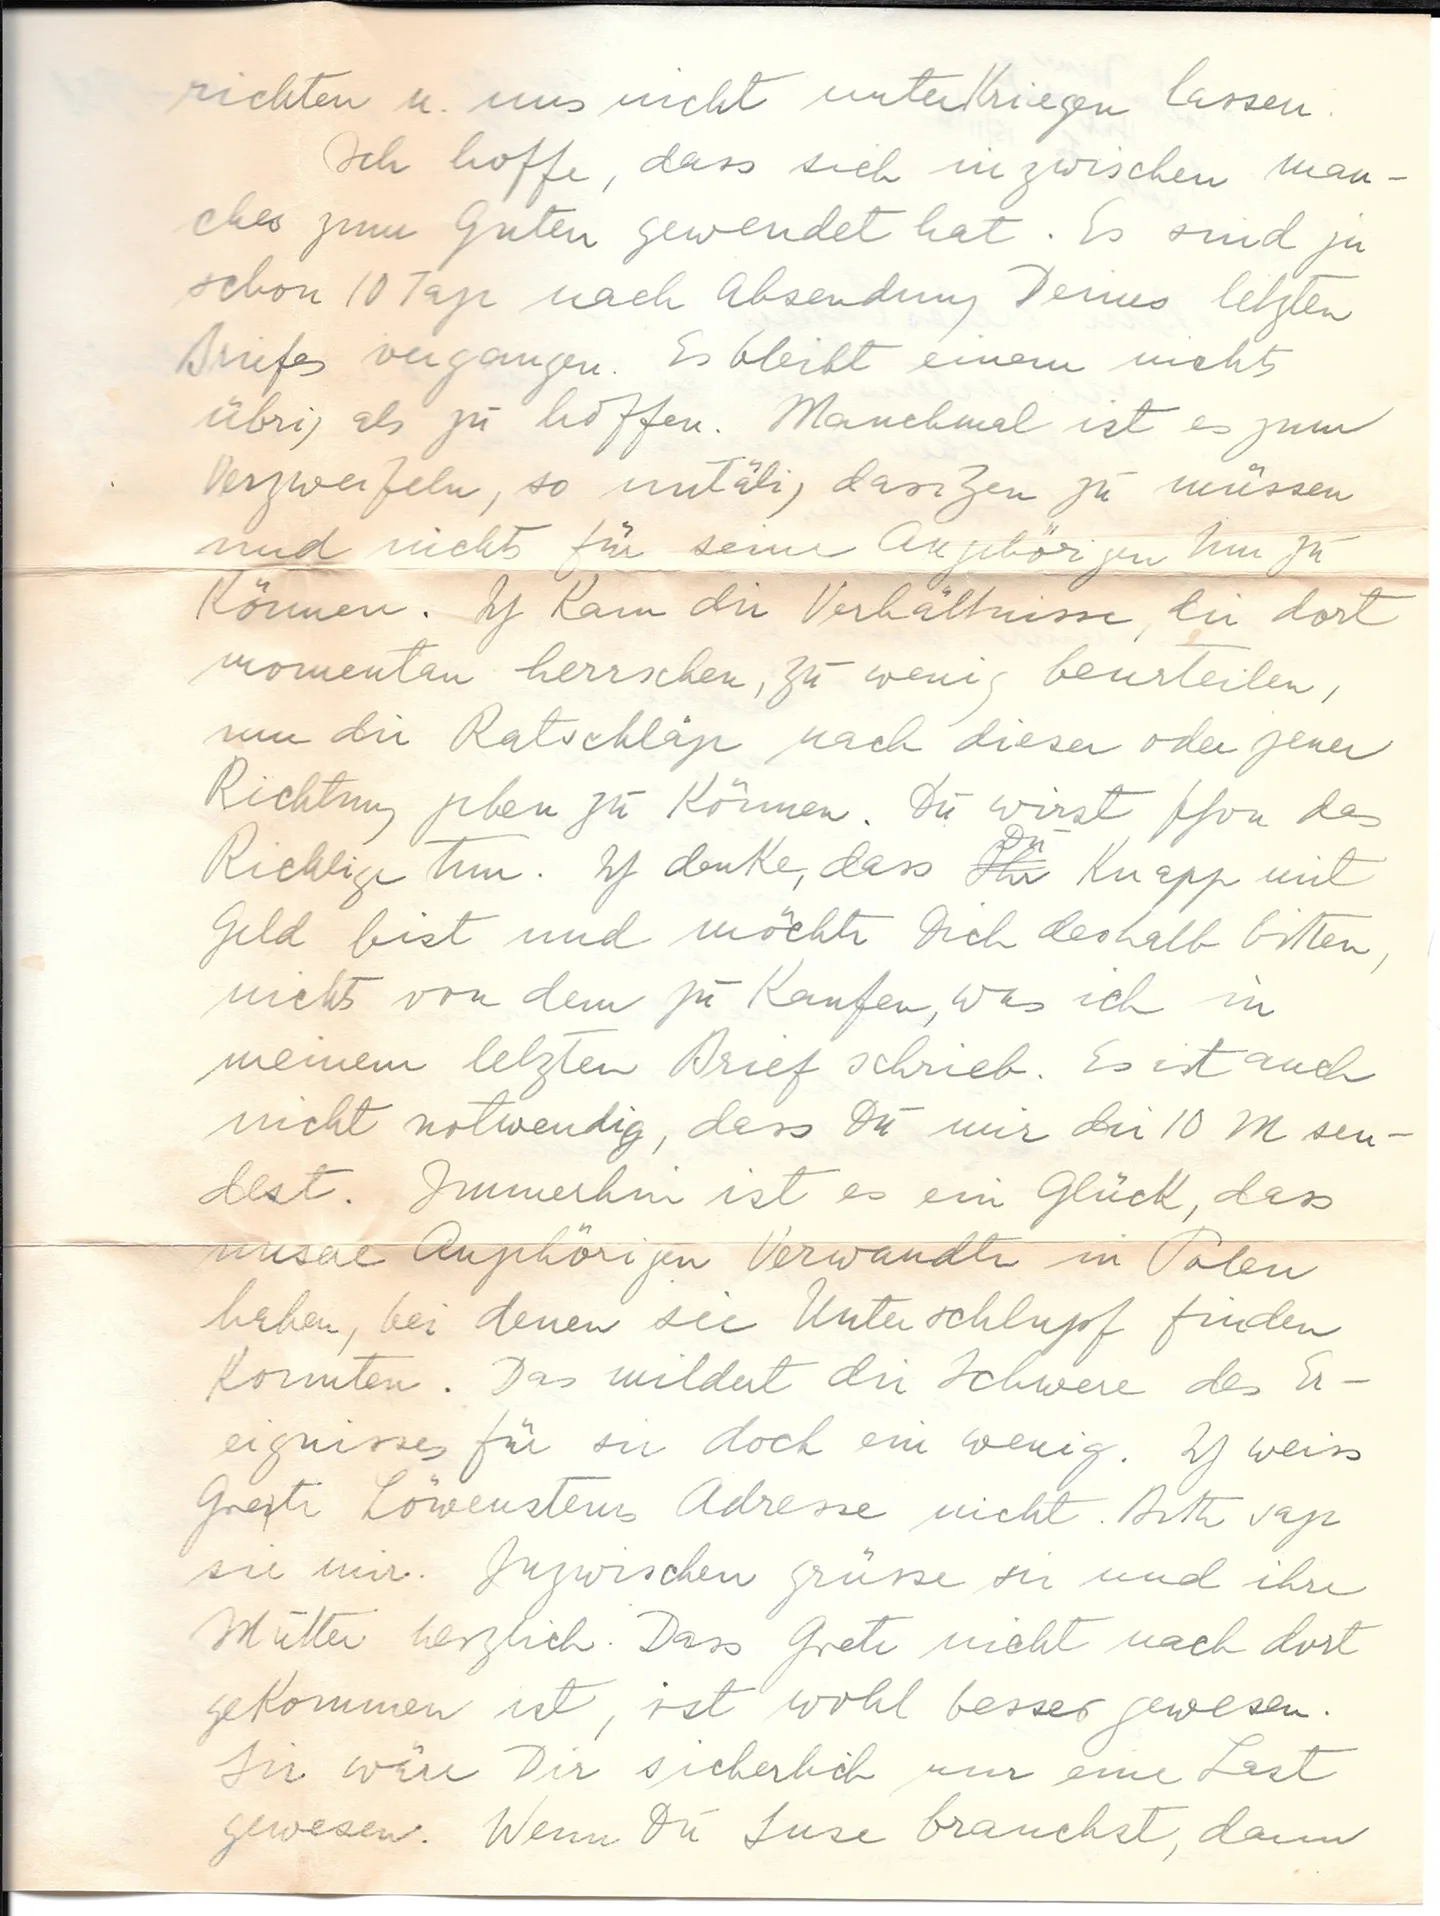 richten u. uns nicht unterkriegen lassen.
Ich hoffe, dass sich inzwischen man-
ches zum Guten gewendet hat. Es sind ja
schon 10 Tage nach Absendung Deines letzten
Briefes vergangen. Es bleibt einem nichts
übrig als zu hoffen. Manchmal ist es zum
Verzweifeln, so untätig dasitzen zu müssen
und nichts für seine Angehörigen tun zu
können. Ich kann die Verhältnisse, die dort
momentan herrschen, zu wenig beurteilen,
um dir Ratschläge nach dieser oder jener
Richtung geben zu können. Du wirst schon das
Richtige tun. Ich denke, dass Du knapp mit
Geld bist und möchte Dich deshalb bitten,
nichts von dem zu kaufen, was ich in
meinem letzten Brief schrieb. Es ist auch
nicht notwendig, dass Du mir die 10 M sen-
dest. Immerhin ist es ein Glück, dass
unsere Angehörigen Verwandte in Polen
haben, bei denen sie Unterschlupf finden
konnten. Das mildert die Schwere des Er-
eignisses für sie doch ein wenig. Ich weiss
Grete Löwensteins Adresse nicht. Bitte sage
sie mir. Inzwischen grüsse sie und ihre
Mutter herzlich. Dass Grete nicht nach dort
gekommen ist, ist wohl besser gewesen.
Sie wäre Dir sicherlich nur eine Last
gewesen. Wenn Du Suse brauchst, dann